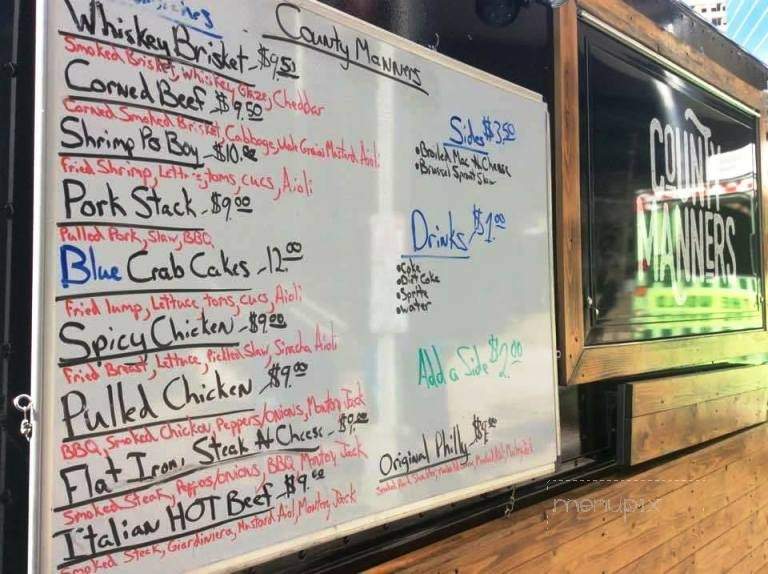 County Manners
Whiskey Brisket - $9.50
Smoked Brisket, Whiskey Glaze, Cheddar
Corned Beef $9.50
Corned Smoked Brisket, Cabbage, Whole Grain Mustard Aioli
Shrimp Po Boy - $10.00
Fried Shrimp, Lettuce, toms, cucs, Aioli
Pork Stack - $9.00
Pulled Pork, Slaw, BBQ
Blue Crab Cakes - 12.00
Fried lump, Lettuce, toms, cucs, Aioli
Spicy Chicken - $9.00
Fried Breast, Lettuce, Pickled Slaw, Siracha Aioli
Pulled Chicken - $9.00
BBQ, Smoked Chicken, Peppers/onions, Montry Jack
Flat Iron, Steak N Cheese - $9.00
Smoked Steak, Peppos/onions, BBQ, Montry Jack
Italian HOT Beef - $9.00
Smoked Steak, Giardiniera, Mustard Aioli, Montry Jack
Sides $3.50
• Broiled Mac N Cheese
• Brussel Sprout Slaw
Drinks - $1.00
• Coke
• Diet Coke
• Sprite
• water
Add a Side $2.00
Original Philly - $9.00
COUNTY
MANNERS
menupix